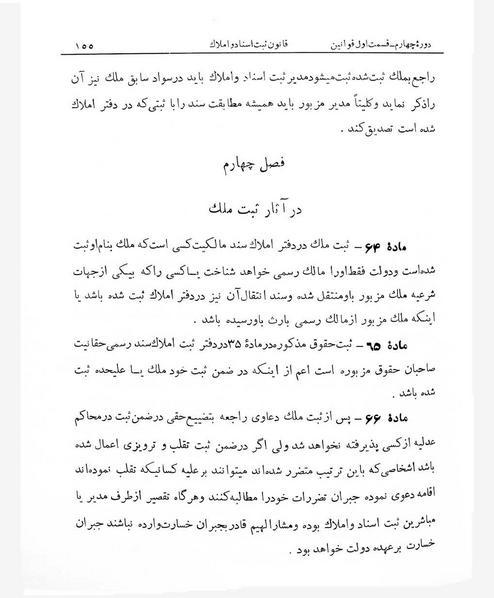 دورهٔ چهارم ـ قسمت اول قوانین قانون ثبت اسناد و املاك ۱۵۵
راجع بملك ثبت شده ثبت میشود مدیر ثبت اسناد و املاك باید در سواد سابق ملك نیز آن
را ذکر نماید و کلیتاً مدیر مزبور باید همیشه مطابقت سند را با ثبتی که در دفتر املاك
شده است تصدیق کند .
فصل چهارم
در آثار ثبت ملك
مادهٔ ۶۴ ـ ثبت ملك در دفتر املاك سند مالکیت کسی است که ملك بنام او ثبت
شده است و دولت فقط او را مالك رسمی خواهد شناخت یا کسی را که بیکی از جهات
شرعیه ملك مزبور باو منتقل شده و سند انتقال آن نیز در دفتر املاك ثبت شده باشد یا
اینکه ملك مزبور از مالك رسمی بارث باو رسیده باشد .
مادهٔ ۶۵ ـ ثبت حقوق مذکوره در مادهٔ ۳۵ در دفتر ثبت املاك سند رسمی حقانیت
صاحبان حقوق مزبوره است اعم از اینکه در ضمن ثبت خود ملك یا علیحده ثبت
شده باشد .
مادهٔ ۶۶ ـ پس از ثبت ملك دعاوی راجعه بتضییع حقی در ضمن ثبت در محاکم
عدلیه از کسی پذیرفته نخواهد شد ولی اگر در ضمن ثبت تقلب و ترویزی اعمال شده
باشد اشخاصی که باین ترتیب متضرر شده‌اند میتوانند بر علیه کسانیکه تقلب نموده‌اند
اقامه دعوی نموده جبران تضررات خود را مطالبه کنند و هر گاه تقصیر از طرف مدیر یا
مباشرین ثبت اسناد و املاك بوده و مشارالیهم قادر بجبران خسارت وارده نباشند جبران
خسارت بر عهده دولت خواهد بود .